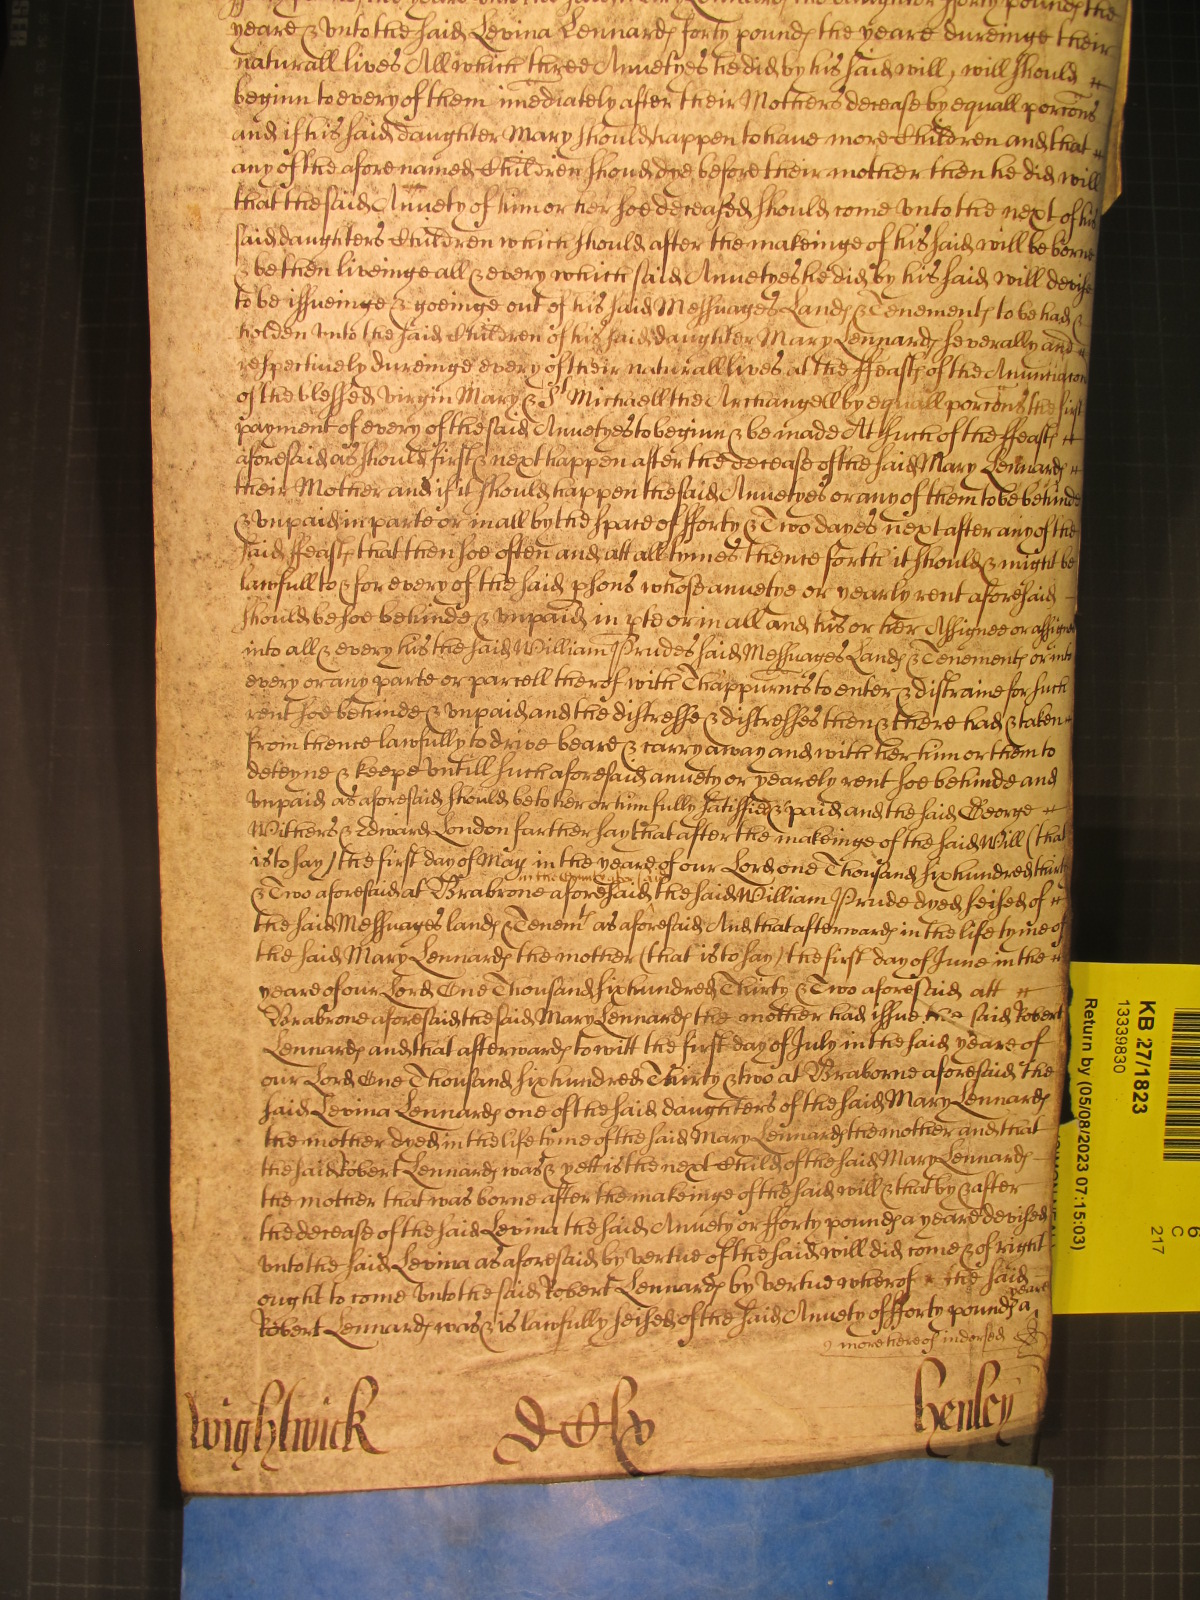 yeare & unto the said Levina Lennard forty pounds the yeare dureinge their
naturall lives All which three Annuetyes he did by his said will, will should
beginn to every of them imediately after their Mothers decease by equall porcons
and if his said daughter Mary should happen to have more Children and that
any of the afore named Children should dye before their mother then he did will
that the said Annuety of him or her soe deceased should come unto the next of his
said daughters Children which should after the makeinge of his said will be borne
& be then liveinge all & every which said Annuetyes he did by his said will devise
to be issueinge & goeinge out of his said Messuages Lands & Tenements to be had &
holden unto the said Children of his said daughter Mary Lennard severally and
respectively dureinge every of their naturall lives at the ffeasts of the Anunciacon
of the blessed virgin Mary & St Michaell the Archangell by equall porcons the first
payment of every of the said Annuetyes to beginn & be made At such of the ffeasts
aforesaid as should first & next happen after the decease of the said Mary Lennard
their Mother and if it should happen the said Annuetyes or any of them to be behinde
& unpaid in parte or in all by the space of fforty & Two dayes next after any of the
said ffeasts that then soe often and att all tymes thence forth it should & might be
lawfull to & for every of the said psons whose annuetye or yearly rent aforesaid
should be soe behinde & unpaid in pte or in all and his or her Assignee or assignes
into all & every his the said William Prudes said Messuages Lands & Tenements or into
every or any parte or parcell therof with Thappurtncs to enter & distraine for such
rent soe behinde & unpaid and the distresse & distresses then & there had & taken
from thence lawfully to drive beare & carry away and with her him or them to
deteyne & keepe untill such aforesaid annuety or yearely rent soe behinde and
unpaid as aforesaid should be to her or him fully satisfied & paid and the said George
Withers & Edward London farther say that after the makeinge of the said Will (that
is to say) the first day of May in the yeare of our Lord one Thousand six hundred thirty
in the County aforesaid
& Two aforesaid at Brabrone aforesaid the said William Prude dyed seised of
the said Messuages lands & Tenemts as aforesaid And that afterwards in the life tyme of
the said Mary Lennard the mother (that is to say) the first day of June in the
yeare of our Lord One Thousand six hundred Thirty & Two aforesaid att
Brabrone aforesaid the said Mary Lennard the mother had issue the said Robert
Lennard and that afterwards to witt the first day of July in the said yeare of
our Lord One Thousand six hundred Thirty & two at Braborne aforesaid the
said Levina Lennard one of the said daughters of the said Mary Lennard
the mother dyed in the life tyme of the said Mary Lennard the mother and that
the said Robert Lennard was & yett is the next Child of the said Mary Lennard
the mother that was borne after the makeinge of the said will & that by & after
the decease of the said Levina the said Annuety or fforty pounds a yeare devised
unto the said Levina as aforesaid by vertue of the said will did come & of right
ought to come unto the said Robert Lennard by vertue wherof the said
Robert Lennard was & is lawfully seised of the said Annuety of fforty pounds a
yeare
more thereof indorsed
Wightwick
Henley
KB 27/1823
13339830
Return by (05/08/2023 07:15:03)
C
217